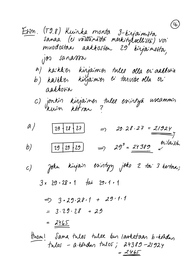 Esim. (T9.8) Kuinka monta 3-kirjaimista
sanaa (ei välttämättä merkityksellistä) voi
muodostaa aakkosten 29 kirjaimista,
jos sanassa
a) kaikkien kirjaimien tulee olla eri aakkosia
b) kaikkien kirjaimien ei tarvitse olla eri
aakkosia
c) jonkin kirjaimen tulee esiintyä useammin
kuin kerran?
a) 29 28 27 => 29·28·27 = 21924
b) 29 29 29 => 29³ = 24389
c) jokin kirjain esiintyy joko 2 tai 3 kertaa;
3 · 29·28·1 tai 29·1·1
=> 3·29·28·1 + 29·1·1
= 3·29·28 + 29
= 2465
Huom! Sama tulos tulee kun lasketaan b-kohdan
tulos - a-kohdan tulos; 24389-21924
= 2465